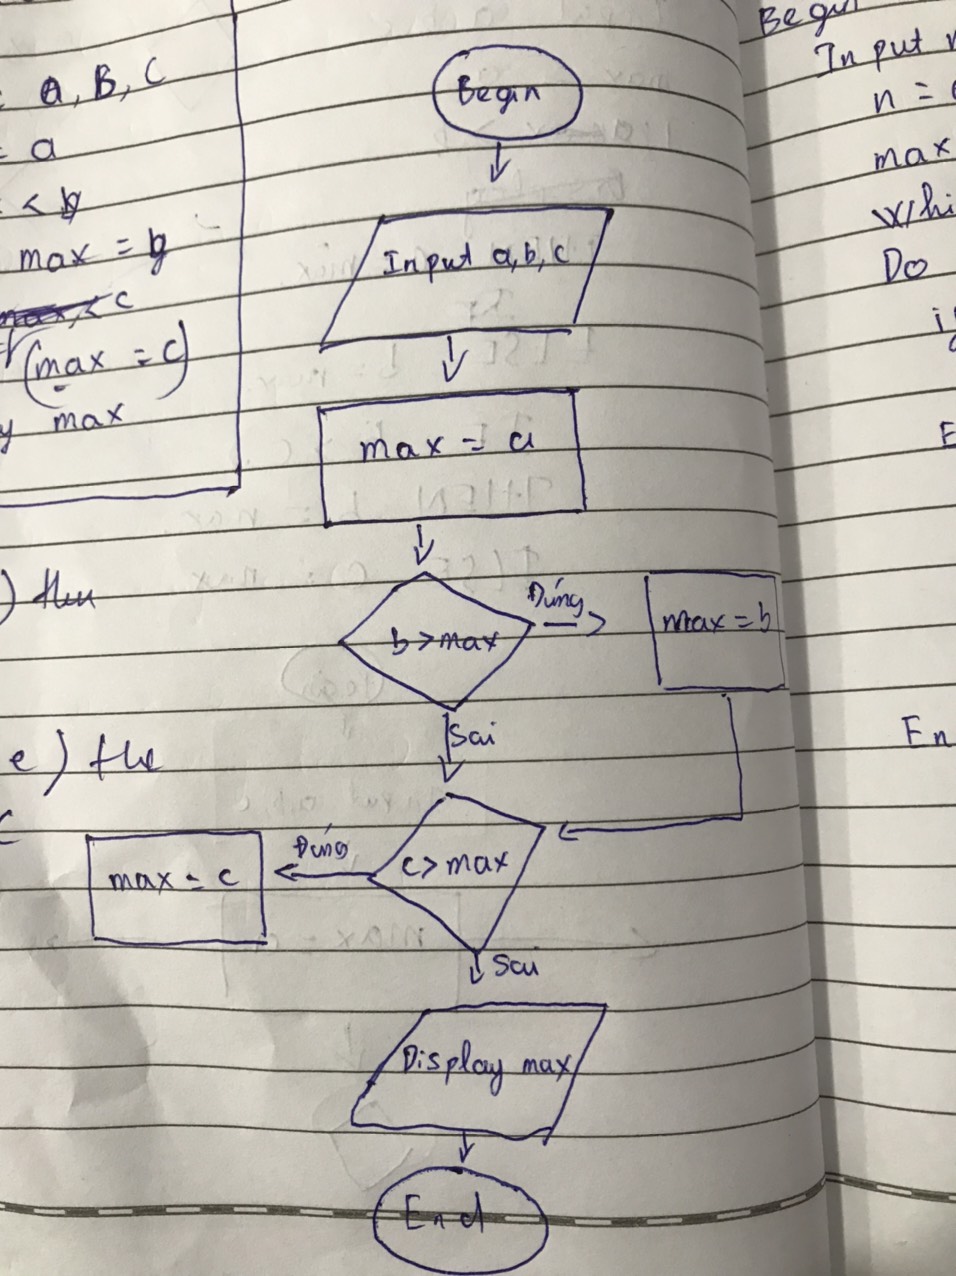 a, B, C
= a
< b
max = b
c
(max = c)
max
) then
e) the
Begin
Input a, b, c
max = a
b > max
Đúng
max = b
Sai
c > max
Đúng
max = c
Sai
Display max
End
Begin
Input
n =
max
Whi
Do
if
E
En